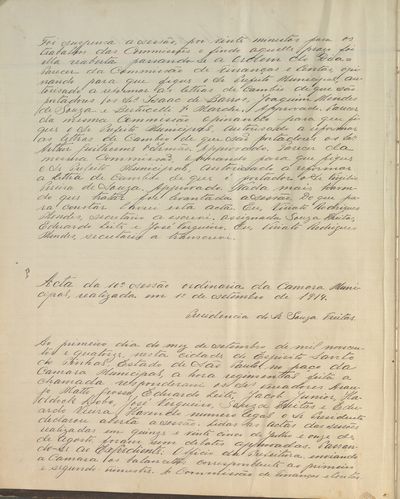 Foi suspensa a sessão, por trinta minutos para os
trabalhos das Commissões e findo aquelle praso foi
ella reaberta passando-se a Ordem do Dia: Pa-
recer da Commissão de Finanças e Contas, opi-
nando para que fique o Sr Prefeito Municipal, au-
torisado a reformar as lettras de Cambio de que são
portadores os Srs. Isaac de Barros, Joaquim Mendes
de Souza e Approvado. Parecer
da mesma Commissão opinando para que fi-
que o Sr Prefeito Municipal, autorisado a reformar
as lettras de Cambio de que são portadores os Srs.
Arthur Guilherme Approvado. Parecer da
mesma Commissão, opinando para que fique
o Sr Prefeito Municipal, autorisado a reformar
a lettra de Cambio de que é portador o Sr
de Souza. Approvado. Nada mais haven-
do que tratar foi levantada a sessão. Do que pa-
ra constar lavrei esta acta. Eu, Rodrigues
Mendes, secretario a escrevi. Assignados Souza Freitas,
Eduardo Leite e José Cerqueira. Eu, Rodrigues
Mendes, secretario a transcrevi.
Acta da 10ª sessão ordinaria da Camara Muni-
cipal, realizada em 1º de setembro de 1914.
Presidencia do Sr Souza Freitas
Ao primeiro dia do mez de setembro de mil novecen-
tos e quatorze, nesta cidade de Espirito Santo
do Pinhal, Estado de São Paulo, no paço da
Camara Municipal, a hora regimental feita a
chamada responderam os Srs. vereadores
Matto Grosso, Eduardo Leite, Jacob Junior,
Lobo, José Cerqueira, Souza Freitas e Edu-
ardo Vieira. Havendo numero legal o Sr Presidente
declarou aberta a sessão. Lidas as actas das sessões
realizadas em quinze e vinte cinco de julho e onze de
de Agosto, foram sem debates approvadas. Passan-
do-se ao Expediente: Officio da Prefeitura, enviando
a Camara os balancetes correspondente ao primeiro
e segundo trimestre. A Commissão de finanças e contas